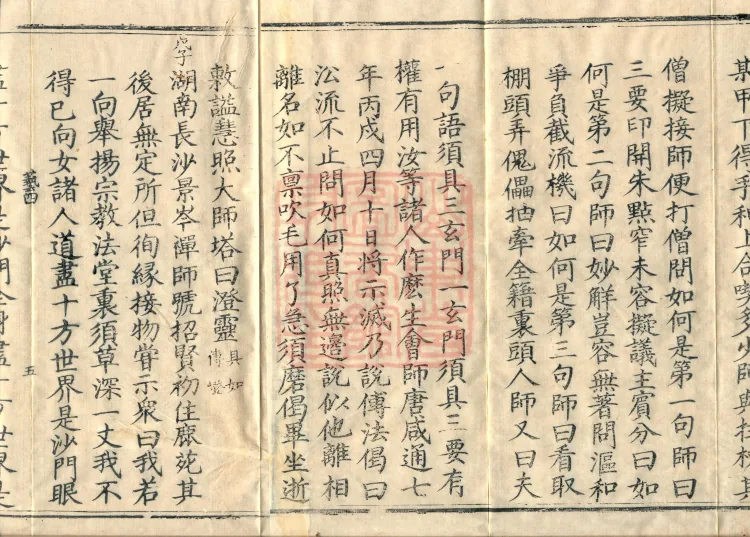 斯甲下得手和上合喫多少師與拄杖其
僧擬接師便打僧問如何是第一句師曰
三要印開朱點窄未容擬議主賓分曰如
何是第二句師曰妙解豈容無著問漚和
爭負截流機曰如何是第三句師曰看取
棚頭弄傀儡抽牽全籍裏頭人師又曰夫
一句語須具三玄門一玄門須具三要有
權有用汝等諸人作麽生會師唐咸通七
年丙戌四月十日將示滅乃說傳法偈曰
㳂流不止問如何真照無邊說似他離相
離名如不禀吹毛用了急須磨偈畢坐逝
敕謚慧照大師塔曰澄靈具如傳燈
湖南長沙景岑禪師號招賢初住鹿苑其
後居無定所但徇緣接物甞示衆曰我若
一向舉揚宗教法堂裏須草深一丈我不
得已向女諸人道盡十方世界是沙門眼
五